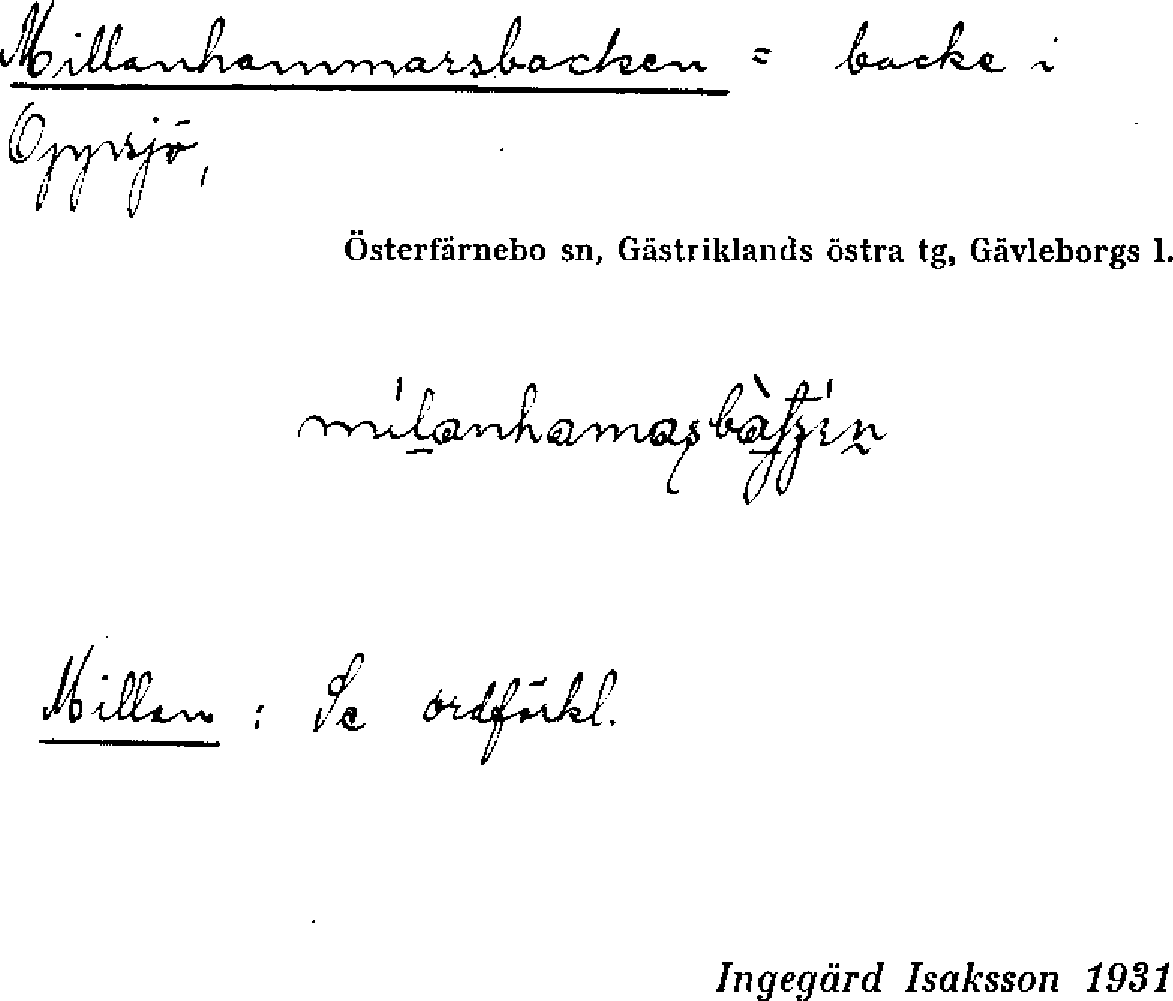 Millanhammarsbacken = backe i
Oppsjö,
Österfärnebo sn, Gästriklands östra tg, Gävleborgs l.
Millan : Se ordförkl.
Ingegärd Isaksson 1931